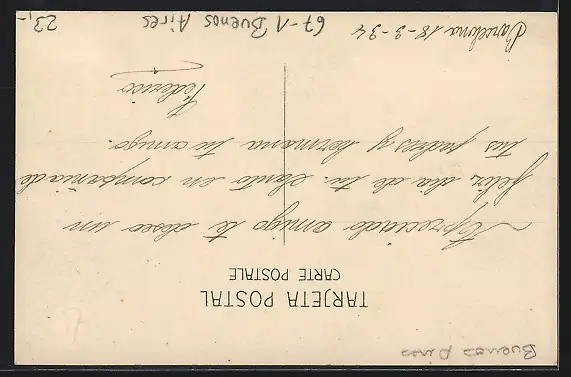 Buenos Aires
TARJETA POSTAL
CARTE POSTALE
Apreciado amigo te deseo un
feliz dia de tu Santo en compañia de
tus padres y hermana tu amigo.
Federico
Barcelona 18-3-34
67-1 Buenos Aires
23,-